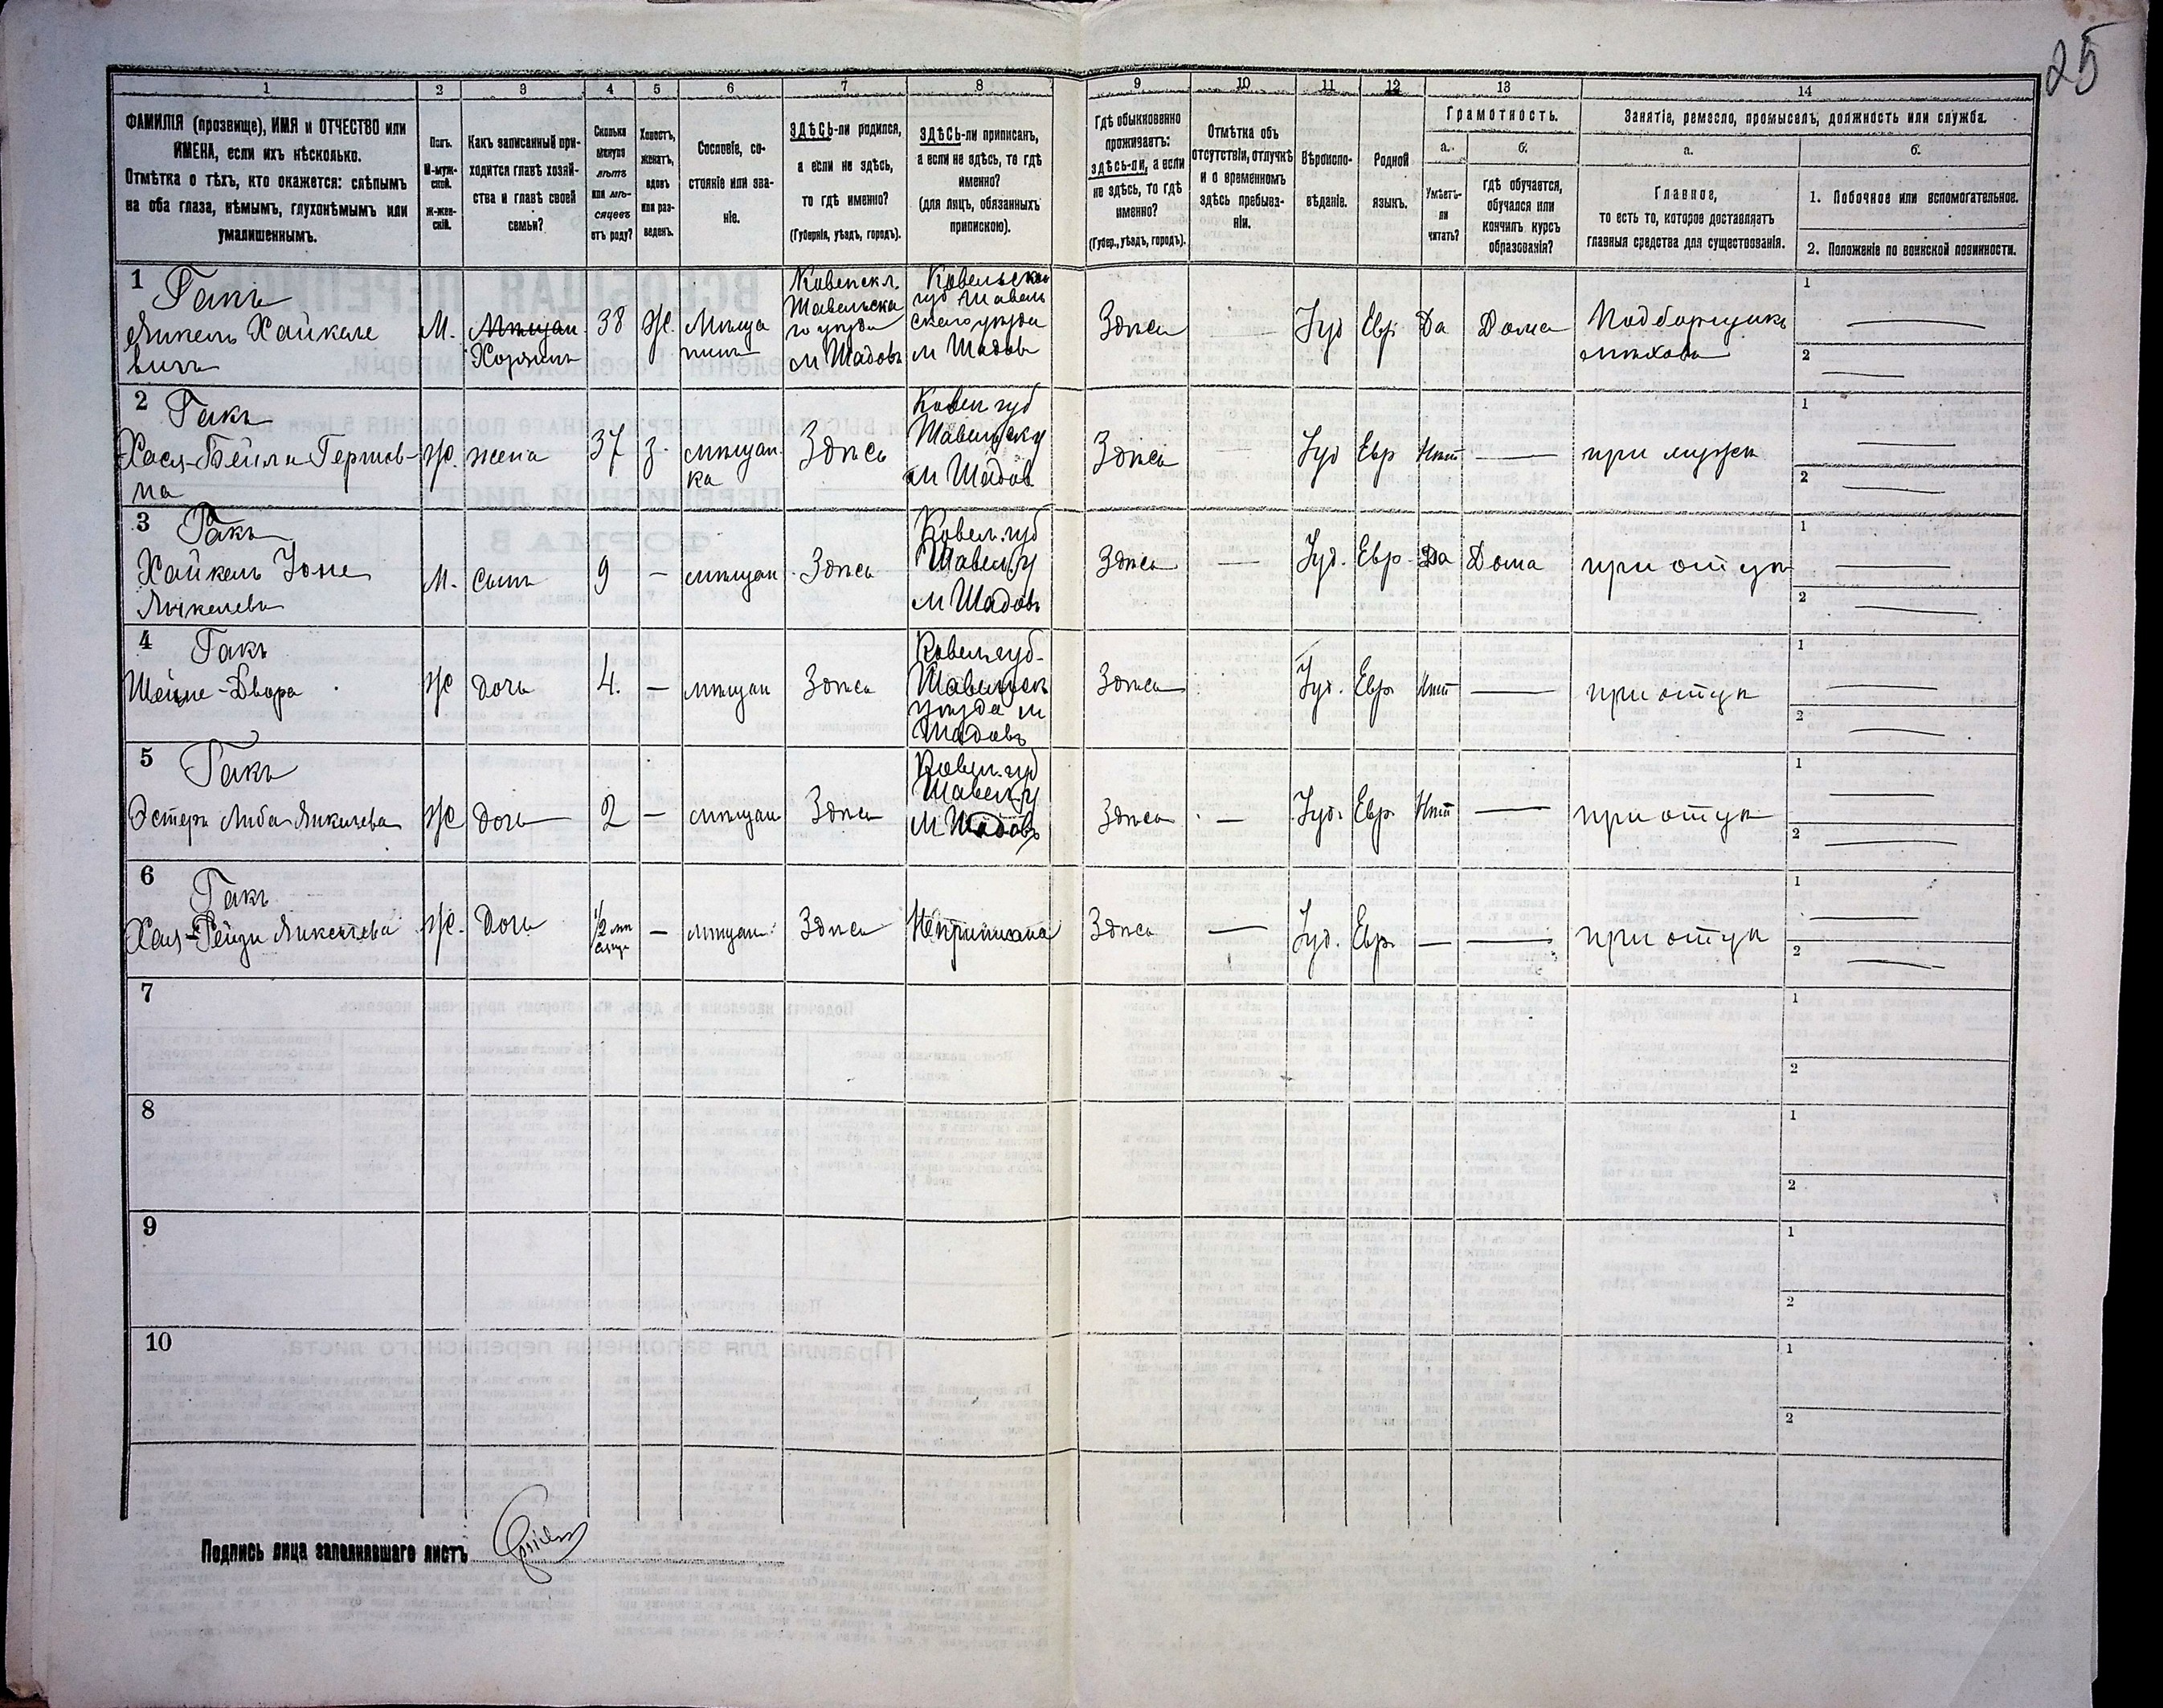 25
1 2 3 4 5 6 7 8 9 10 11 12 13 14
ФАМИЛІЯ (прозвище), ИМЯ и ОТЧЕСТВО или
ИМЕНА, если ихъ нѣсколько.
Отмѣтка о тѣхъ, кто окажется: слѣпымъ
на оба глаза, нѣмымъ, глухонѣмымъ или
умалишеннымъ.
Полъ.
М-муж-
ской.
ж-жен-
скій.
Какъ записанный при-
ходится главѣ хозяй-
ства и главѣ своей
семьи?
Сколько
минуло
лѣтъ
или мѣ-
сяцевъ
отъ роду?
Холостъ,
женатъ,
вдовъ
или раз-
веденъ.
Сословіе, со-
стояніе или зва-
ніе.
ЗДѢСЬ-ли родился,
а если не здѣсь,
то гдѣ именно?
(Губернія, уѣздъ, городъ).
ЗДѢСЬ-ли приписанъ,
а если не здѣсь, то гдѣ
именно?
(для лицъ, обязанныхъ
припискою).
Гдѣ обыкновенно
проживаетъ:
здѣсь-ли, а если
не здѣсь, то гдѣ
именно?
(Губер., уѣздъ, городъ).
Отмѣтка объ
отсутствіи, отлучкѣ
и о временномъ
здѣсь пребыва-
ніи.
Вѣроиспо-
вѣданіе.
Родной
языкъ.
Грамотность.
а. б.
Умѣетъ-
ли
читать?
гдѣ обучается,
обучался или
кончилъ курсъ
образованія?
Занятіе, ремесло, промыселъ, должность или служба.
а. б.
Главное,
то есть то, которое доставляетъ
главныя средства для существованія.
1. Побочное или вспомогательное.
2. Положеніе по воинской повинности.
1
Гакъ
Янкель Хайкеле
вичъ
М.
Мѣщан
Хозяинъ
38
Ж.
Мѣща
нинъ
Ковенск г.
Шавельска
го уѣзда
м Шадовъ
Ковенской
губ Шавель
скаго уѣзда
м Шадовъ
Здѣсь
Іуд
Евр
Да
Дома
Подборщикъ
мѣховъ
1
2
2
Гакъ
Хася-Бейла Гершов-
на
Ж.
жена
37
З.
мѣщан
ка
Здѣсь
Ковен губ
Шавельск у
м Шадов
Здѣсь
Іуд
Евр
Нѣт
при мужѣ
1
2
3
Гакъ
Хайкель Іоне
Янкелевъ
М.
сынъ
9
мѣщан
Здѣсь
Ковен. губ
Шавел. у
м Шадовъ
Здѣсь
Іуд.
Евр
Да
Дома
при отцѣ
1
2
4
Гакъ
Шейне-Двора
Ж
Дочь
4.
мѣщан
Здѣсь
Ковен губ.
Шавельск
уѣзда м
Шадовъ
Здѣсь
Іуд.
Евр.
Нѣт
при отцѣ
1
2
5
Гакъ
Эстеръ Либа Янкелева
Ж
Дочь
2
мѣщан
Здѣсь
Ковен. губ
Шавел. у
м Шадовъ
Здѣсь
Іуд.
Евр.
Нѣт
при отцѣ
1
2
6
Гакъ
Хая-Рейзи Янкелева
Ж.
Дочь
1/2 мѣ
сяца
мѣщан.
Здѣсь
Неприписана
Здѣсь
Іуд.
Евр.
при отцѣ
1
2
7
1
2
8
1
2
9
1
2
10
1
2
Подпись лица заполнявшаго листъ